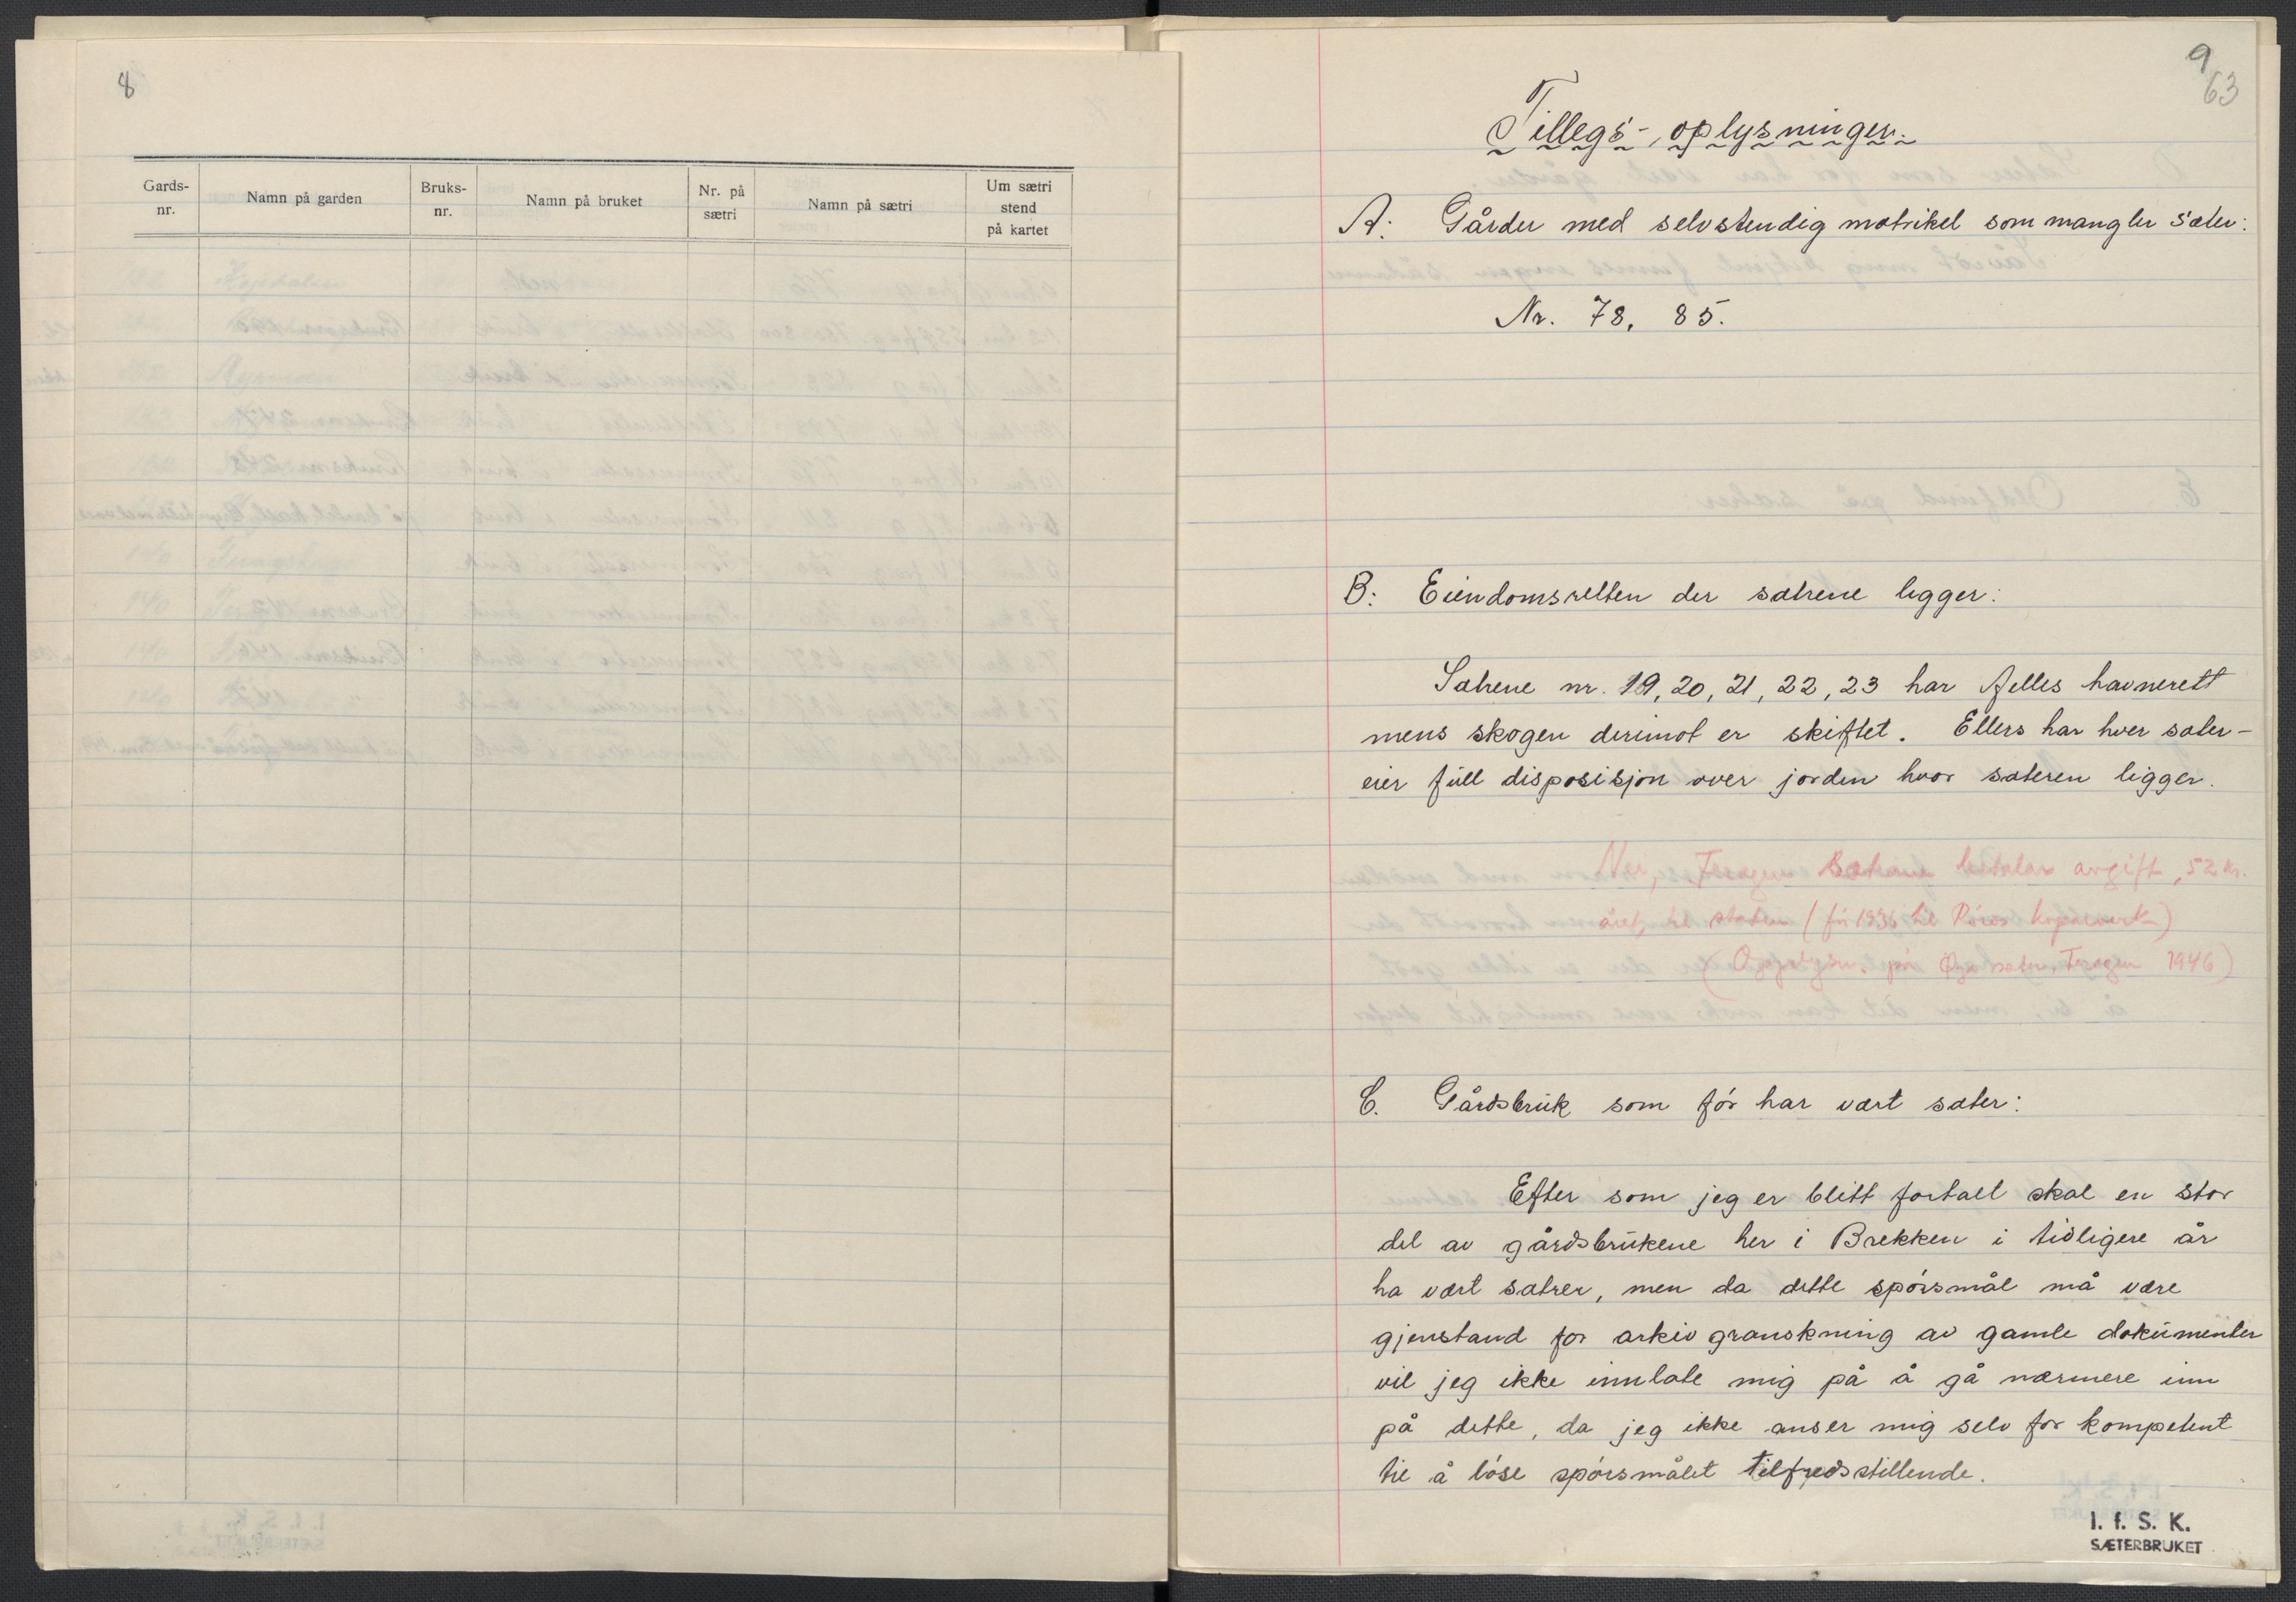 8
Gards-
nr.
Namn på garden
Bruks-
nr.
Namn på bruket
Nr. på
sætri
Namn på sætri
Um sætri
stend
på kartet
9
63
Tillegs-oplysninger.
A. Gårder med selvstendig matrikel som mangler sæter:
Nr. 78, 85.
B: Eiendomsretten der sætrene ligger:
Sætrene nr. 19, 20, 21, 22, 23 har felles havnerett
mens skogen derimot er skiftet. Ellers har hver sæter-
eier full disposisjon over jorden hvor sæteren ligger.
Nei, Feragen sætrane betalar avgift, 52 kr.
året, til staten (før 1936 til Røros koparverk)
(Opplysn. på Øya sæter, Feragen 1946)
C. Gårdsbruk som før har vært sæter:
Efter som jeg er blitt fortalt skal en stor
del av gårdsbrukene her i Brekken i tidligere år
ha vært sætrer, men da dette spørsmål må være
gjenstand for arkivgranskning av gamle dokumenter
vil jeg ikke innlate mig på å gå nærmere inn
på dette, da jeg ikke anser mig selv for kompetent
til å løse spørsmålet tilfredsstillende.
I. f. S. K.
SÆTERBRUKET